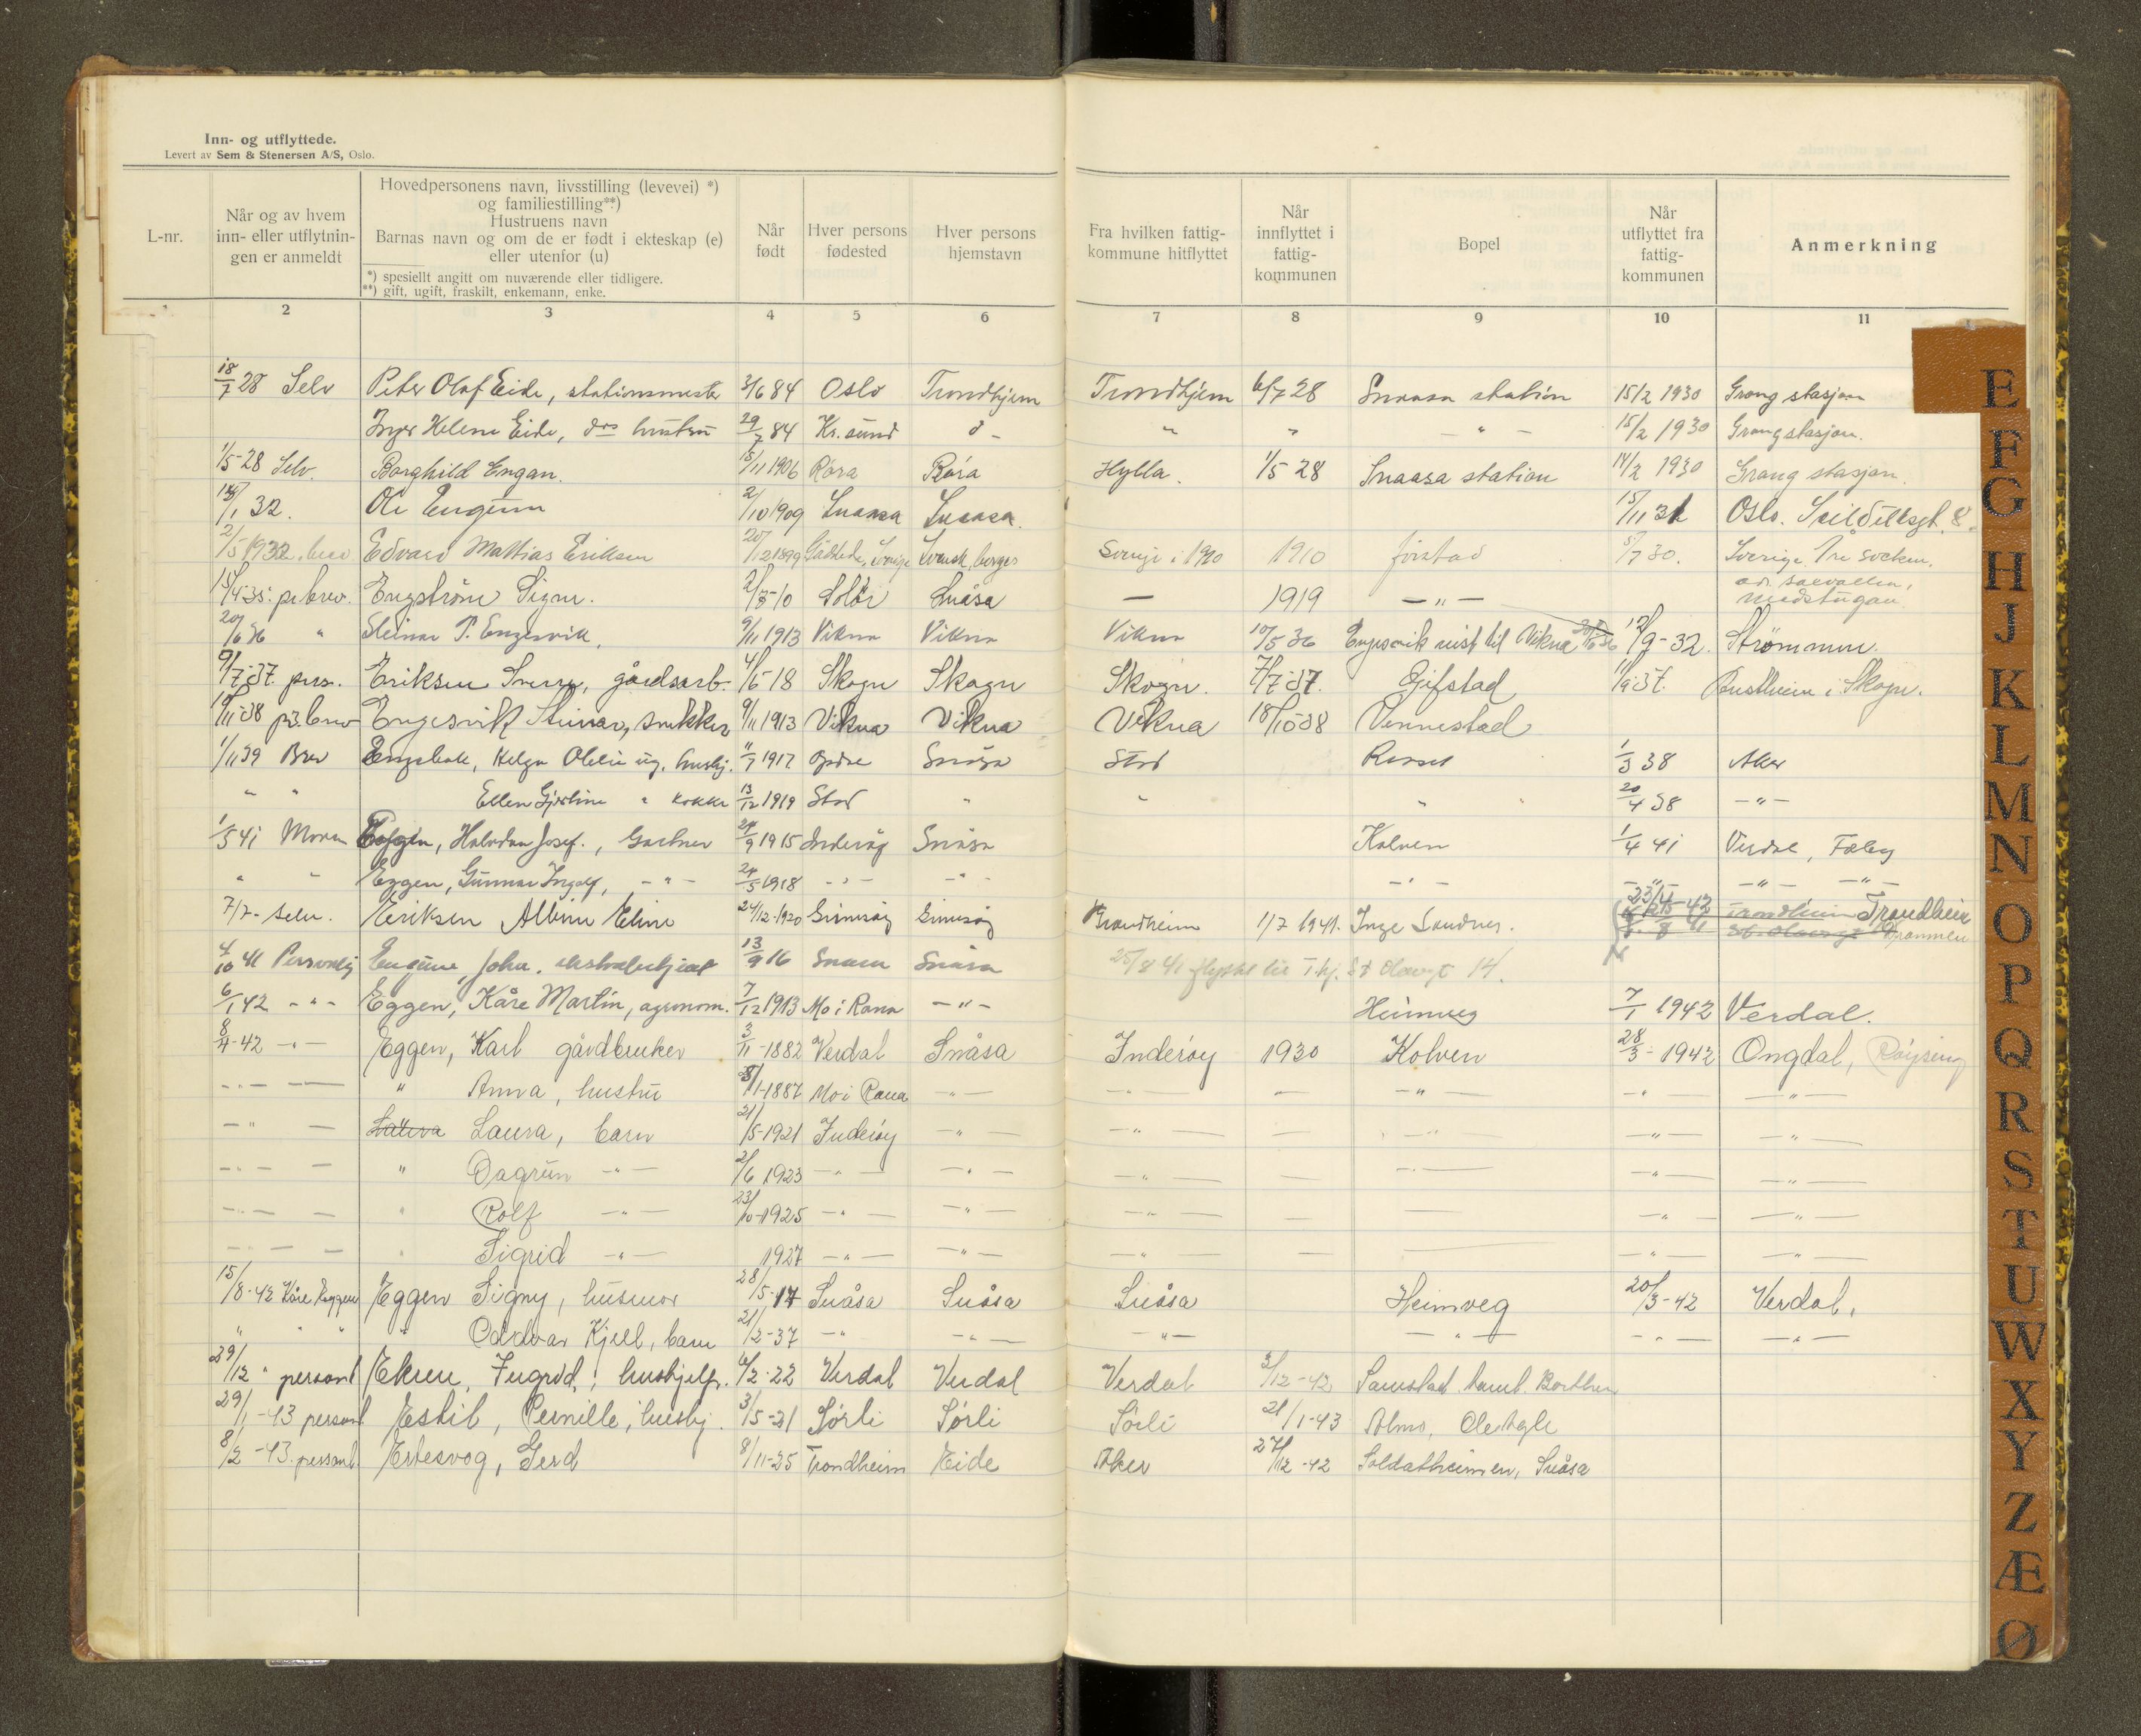 Inn- og utflyttede.
Levert av Sem & Stenersen A/S, Oslo.
L-nr.
Når og av hvem inn- eller utflytnin-gen er anmeldt
Hovedpersonens navn, livsstilling (levevei) *) og familiestilling**)
Hustruens navn
Barnas navn og om de er født i ekteskap (e) eller utenfor (u)
*) spesiellt angitt om nuværende eller tidligere.
**) gift, ugift, fraskilt, enkemann, enke.
Når født
Hver persons fødested
Hver persons hjemstavn
Fra hvilken fattig-kommune hitflyttet
Når innflyttet i fattig-kommunen
Bopel
Når utflyttet fra fattig-kommunen
Anmerkning
2 3 4 5 6 7 8 9 10 11
18/7 28 Selv Peter Olaf Eide, stationsmester 3/6 84 Oslo Trondhjem Trondhjem 6/7 28 Snaasa station 15/2 1930 Grong stasjon
Inger Helene Eide, dos hustru 29/7 84 Kr.sund d - " " - " - 15/2 1930 Grong stasjon.
1/5-28 Selv. Borghild Engan. 15/11 1906 Røra Røra Hylla. 1/5 28 Snaasa station 14/2 1930 Grong stasjon.
/1 32. Ole Engum 2/10 1909 Snaasa Snaasa. 15/11 31 Oslo.
2/5 1932 brev Edvard Mattias Eriksen 20/12 1899 Gäddede, Sverige Svensk borger Sverige i 1910 1910 Jørstad 5/7 30. Sverige Åre socken.
medstugan.
15/4-35. pr brev. Engstrøm Signe. 2/3-10 Snåsa — 1919 — " —
20/6 36 " Steinar P. Engesvik, 9/11 1913 Vikna Vikna Vikna 10/5 36 Engesvik reist til Vikna 12/9-32. Strømmen.
9/7-37. pers. Eriksen Sverre, gårdsarb. 4/5-18 Skogn Skogn Skogn. 7/7-37. Gifstad 11/9-37. i Skogn.
/11-38 pr. brev Engesvik Steinar, snekker 9/11 1913 Vikna Vikna Vikna 18/10-38 Vennestad
1/11 39 Brev Helga Oleviu ug. hushj. 11/7 1917 Snåsa Stod 1/3 38 Aker
" " Ellen Gjertine " kokke 13/12 1919 Stod " " " 20/4 38 — " —
1/5 41 Moren Eggen, Halvdan Josef., Gartner 24/9 1915 Inderøy Snåsa Kolven 1/4 41 Verdal, Fæby
" " Eggen, Gunnar Ingolf, - " - 24/5 1918 - " - - " - - " - - " - - " - - " -
7/7- Selv. Eriksen Albine Eline 24/12-1920 Gimsøy Gimsøy Trondheim 1/7 1941. Inge Sandnes. 23/4 42 Trondheim Trondheim
4/10 41 Personlig Engum, John. 13/9 16 Snåsa Snåsa 25/8 41 flyttet til T.hj. St Olavsgt 14.
6/1 42 - " - Eggen, Kåre Martin, agronom. 7/12 1913 Mo i Rana - " - Heimveg 7/1 1942 Verdal.
8/4-42 - " - Eggen, Karl gårdbruker 3/11-1882 Verdal Snåsa Inderøy 1930 Kolven 28/3-1942 Ongdal, Røysing
- " - — " Anna, hustru /1-1887 Mo i Rana - " - - " - — - " - - " - — " —
- " - — Laura Laura, barn 21/5-1921 Inderøy - " - - " - — - " - - " - — " —
- " - — " Dagrun - " - 2/6 1923 - " - - " - - " - — - " - - " - — " —
- " - — " Rolf - " - 23/10-1925 - " - - " - - " - — — - " - — " —
- — — " Sigrid - " - 1927 - " - - " - - " - — — - " - — " —
15/8-42 Kåre Eggen Eggen Signy, husmor 28/5-17 Snåsa Snåsa Snåsa Heimveg 20/3-42 Verdal.
" " " " Oddvar Kjell, barn 21/2-37 - " - " - - " - - " - - " - - " -
29/12 " personl Ekren, Ingrid, hushjelp. 6/2-22 Verdal Verdal Verdal 3/12-42
29/1-43 personl Estil, Pernille, hushj. 3/5-21 Sørli Sørli Sørli 21/1-43 Almo,
8/2-43. personl Ertesvog, Gerd 8/11-25 Trondheim Eide Aker 27/12-42 Soldatheimen, Snåsa
E
F
G
H
J
K
L
M
N
O
P
Q
R
S
T
U
W
X
Y
Z
Æ
Ø